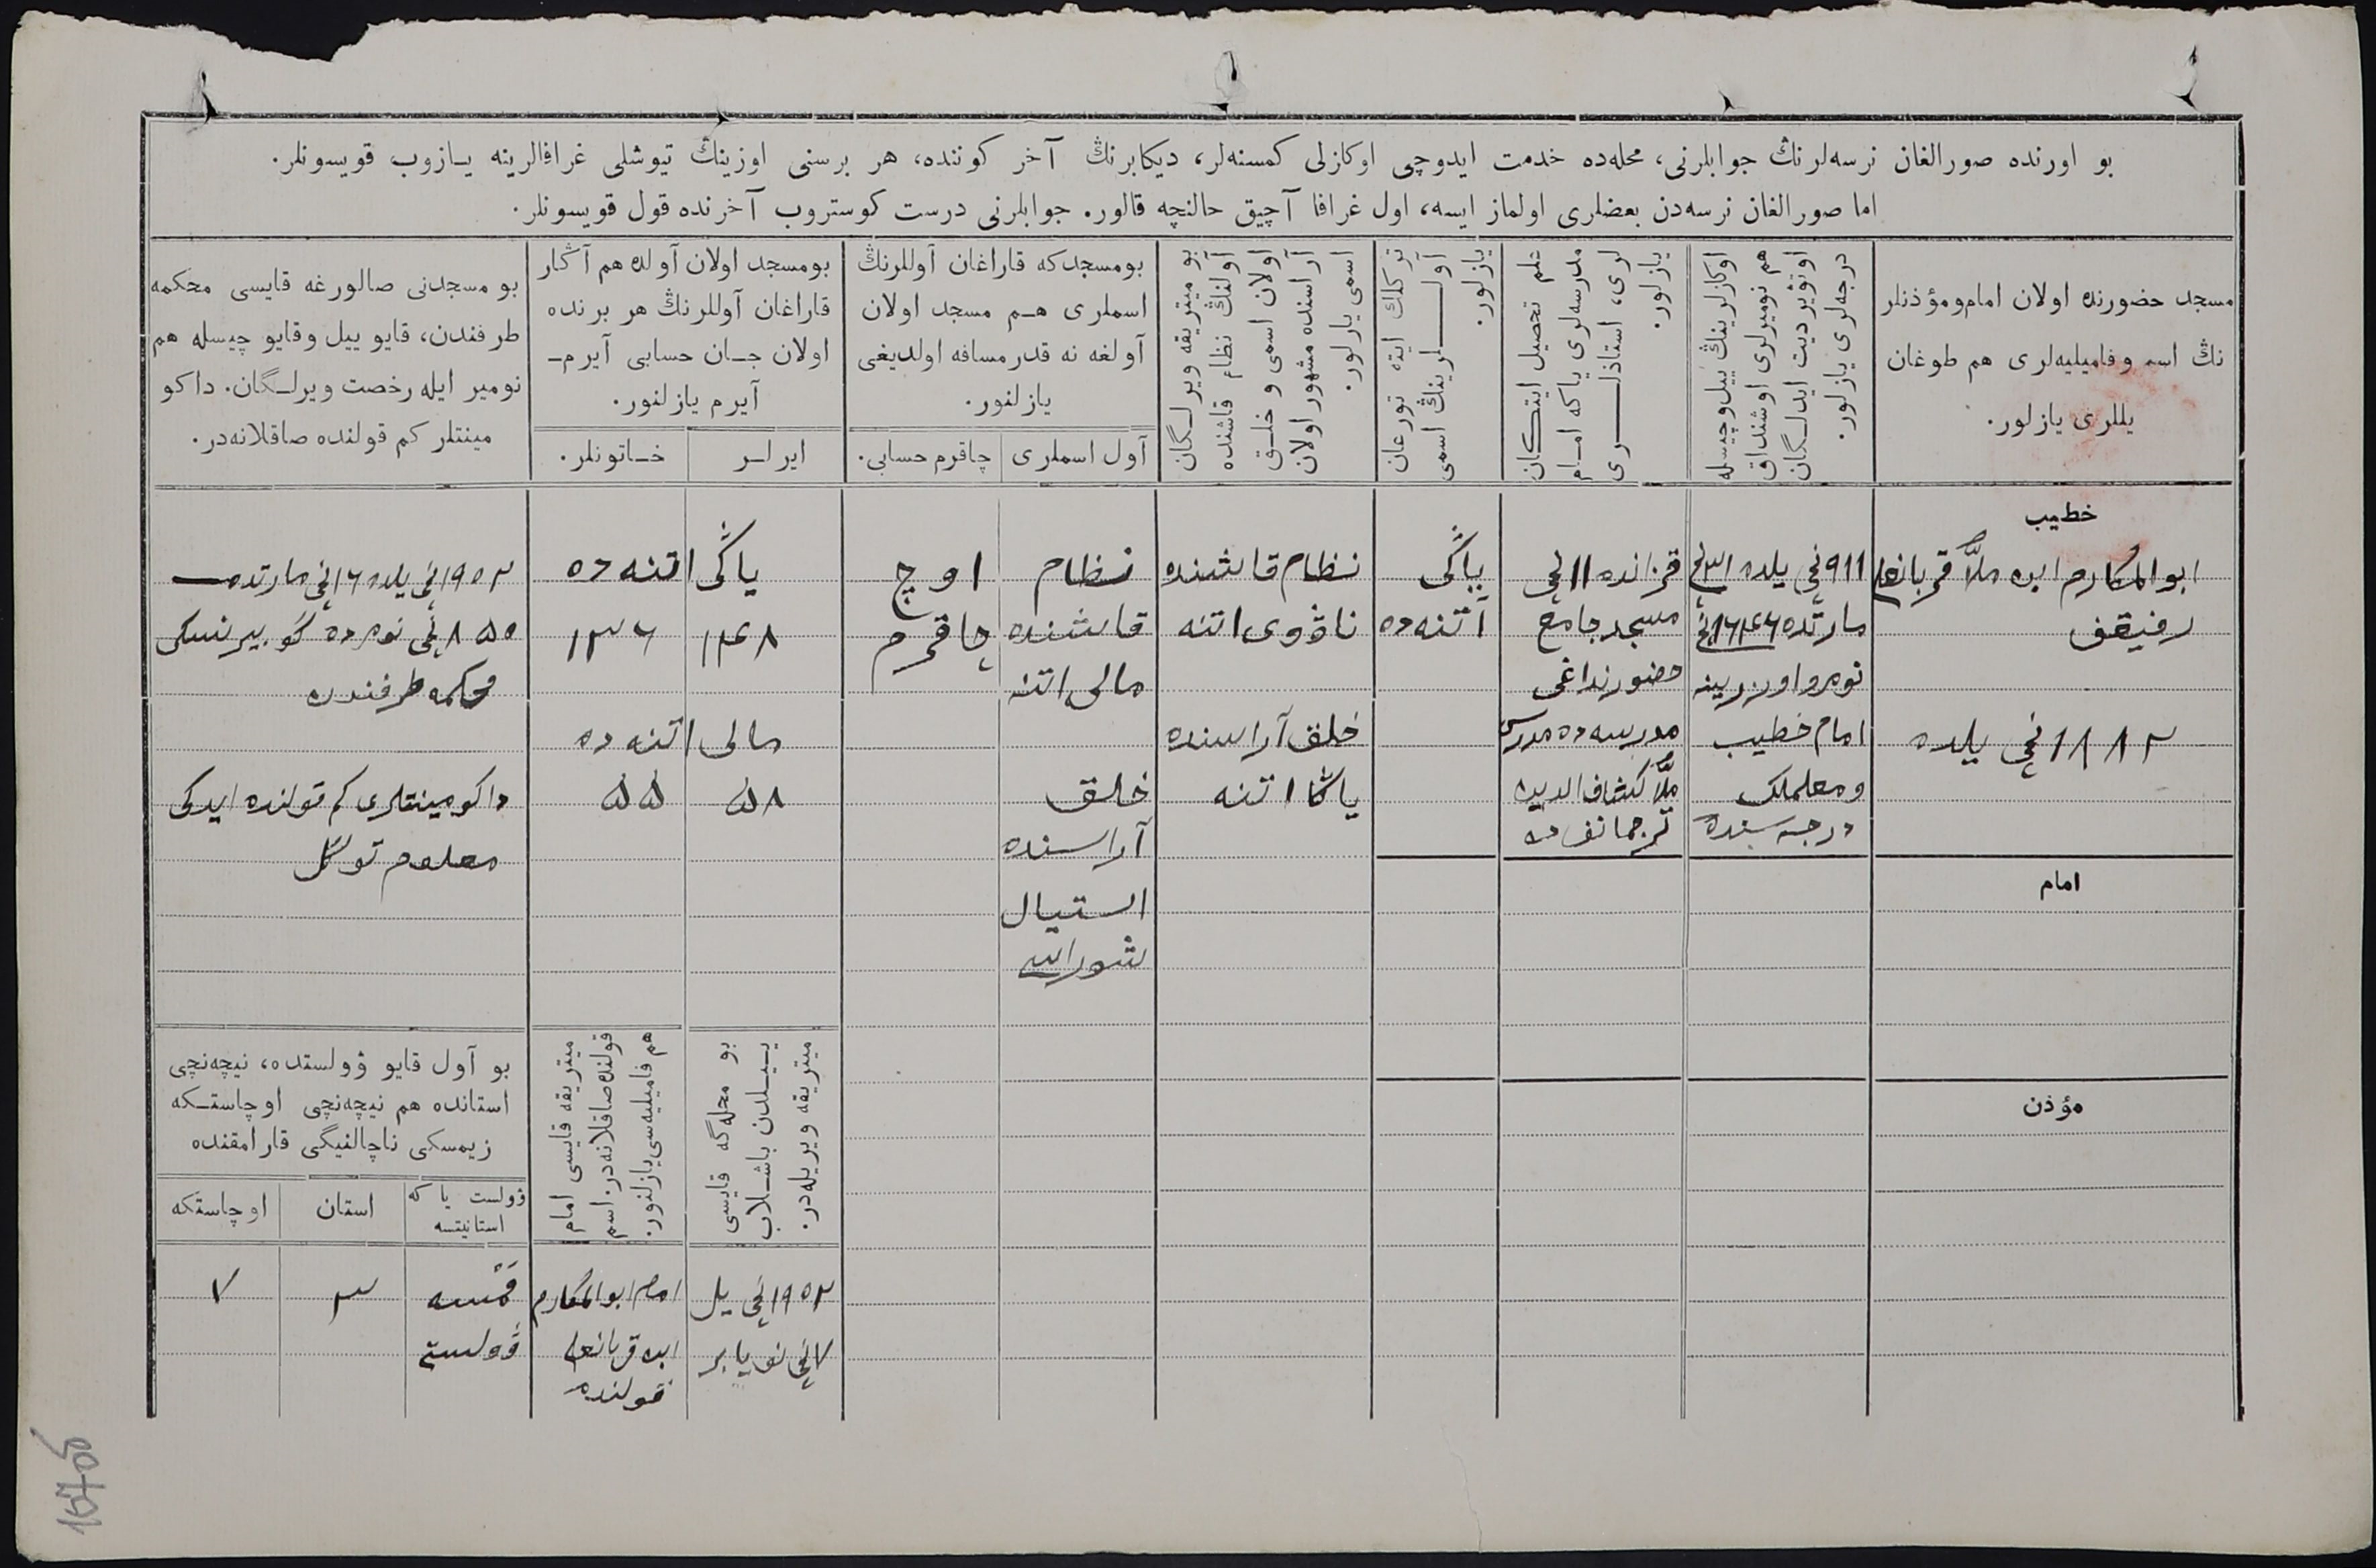 بو اورنده صورالغان نرسه‌لرنڭ جوابلرنی، محله‌ده خدمت ایدوچی اوكازلی كمسنه‌لر، دیكابرنڭ آخر كوننده، هر برسنی اوزینڭ تیوشلی غرافالرینه یـازوب قویسونلر.
اما صورالغان نرسه‌دن بعضلری اولماز ایسه، اول غرافا آچیق حالنچه قالور. جوابلرنی درست كوستروب آخرنده قول قویسونلر.
مسجد حضورنده اولان امام‌ومؤذنلر
نڭ اسم وفامیلیه‌لری هم طوغان
یللری یازلور.
اوكازلرینڭ ییل‌وچیسله
هم نومیرلری اوشنداق
اوتۋیردیت ایدلـگان
درجه‌لری یازلور.
علم تحصیل ایتـكان
مدرسه‌لری یاكه امـام
لری، استاذلـــری
یازلور.
تركلك ایته تورغان
آولـــلرینڭ اسمی
یازلور.
بو میتریقه ویرلـگان
آولنڭ نظام قاشنده
اولان اسمی و خلـق
آراسنده مشهور اولان
اسمی یازلور.
بومسجدكه قاراغان آوللرنڭ
اسملری هـم مسجد اولان
آولغه نه قدر مسافه اولدیغی
یازلنور.
آول اسملری
چاقرم حسابی.
بومسجد اولان آولده هم آڭار
قاراغان آوللرنڭ هر برنده
اولان جـان حسابی آیرم-
آیرم یازلنور.
ایرلـر
خـاتونلر.
بو مسجدنی صالورغه قایسی محكمه
طرفندن، قایو ییل وقایو چیسله هم
نومیر ایله رخصت ویرلـگان. داكو
مینتلر كم قولنده صاقلانه‌در.
خطیب
ابو المكارم ابن ملاّ قربانعلی
رفیقف
١٨٨٢ نچی یلده
٩١١ نچی یلده ٣١ نچی
مارتده ١٦٣٤٦ نچی
نومر اوزرینه
امام خطیب
ومعلملك
درجه سنده
قزانده ١١ نچی
مسجد جامع
حضورنداغی
مدرسه ده مدرس
ملاّ كشاف الدین
ترجمانف ده
یاڭی
آتنه ده
نظام قاشنده
ناۋوی اتنه
خلق آراسنده
یاڭا اتنه
نظام
قاشنده
مالی اتنه
خلق
آراسنده
استیال
اوچ
چاقرم
یاڭی اتنه ده
١٤٨ ١٣٦
مالی اتنه ده
٥٨ ٥٥
١٩٠٢ نچی یلده ١٦ نچی مارتده
٨٥٥ نچی نومرده گوبیرنسكی
محكمه طرفندن
داكومینتلری كم قولنده ایدكی
معلوم توگل
امام
مؤذن
بو محله‌گه قایسی
ییـلدن باشـلاب
میتریقه ویریله‌در.
میتریقه قایسی امام
قولنده‌صاقلانه‌در. اسم
هم فامیلیه‌سی‌یازلنور.
بو آول قایو ۋولستده، نیچه‌نچی
استانده هم نیچه‌نچی اوچاستـكه
زیمسكی ناچالنیگی قارامقنده
ۋولست یا كه
استانیتسه
استان
اوچاستكه
١٩٠٢ نچی یل
٧ نچی نویابر
امام ابو المكارم
ابن قربانعلی
قولنده
قمسه
ۋولستی
٣
٧